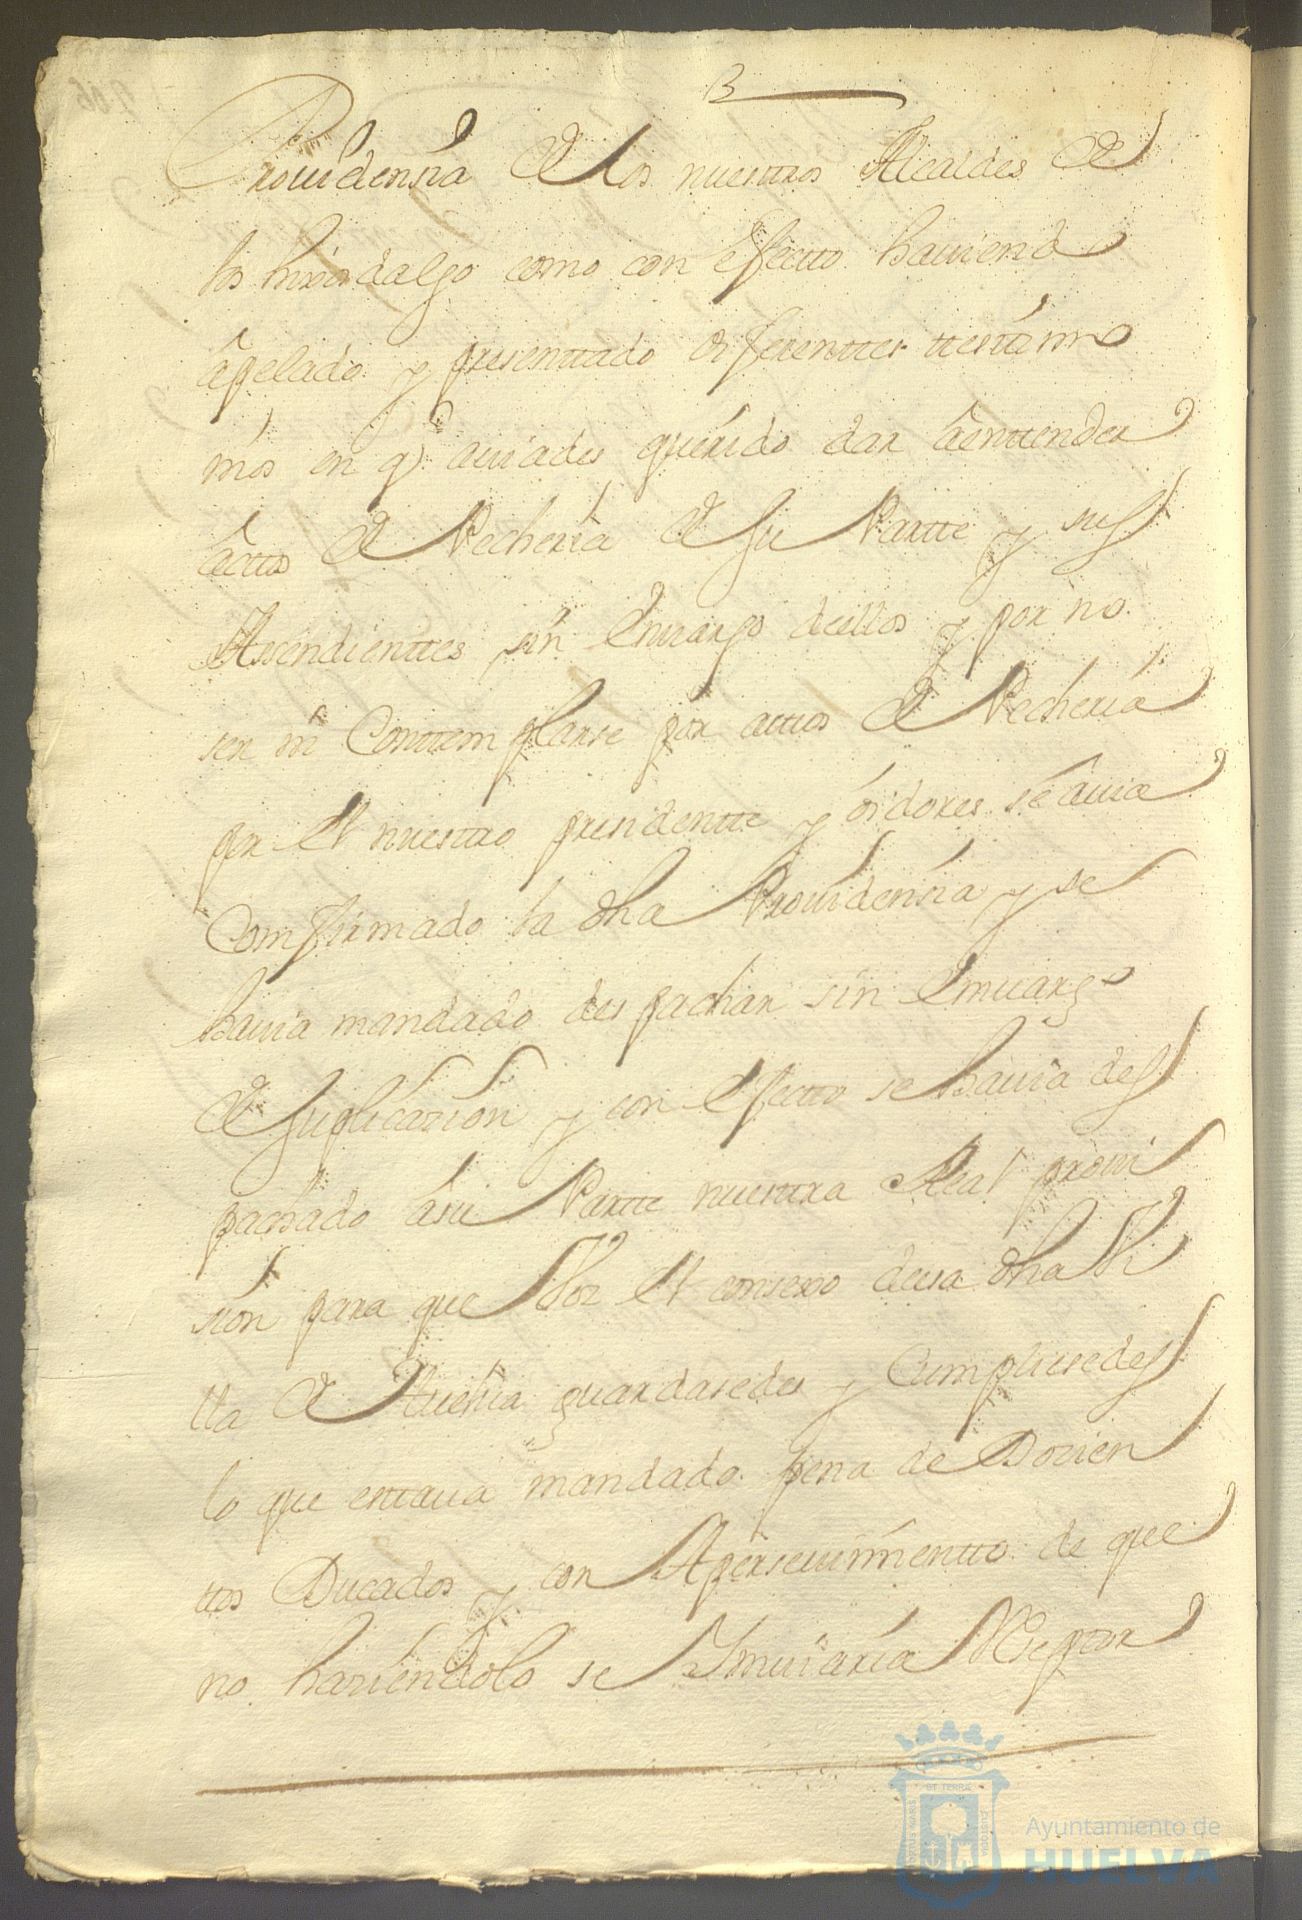 Prouidensia de los nuestros Alcaldes de
los hixosdalgo como con efectto hauiendo
apelado y presenttado diferenttes ttestimo
nios en q auiades querido dar a enttender
acttos de Pecheria de su Partte y sus
Asendienttes sin Enuargo dellos y por no
ser ni Conttemplarse por acttos de Pecheria
por el nuestro presidentte y oidores se auia
Comfirmado la dha Prouidensia y se
hauia mandado despachar sin Emuargo
de suplicazion y con efectto se hauia des
pachado a su Partte nuestra Real proui
sion para que Vos el consexo de esa dha Vi
lla de Huelua guardasedes y Cumpliesedes
lo que esttaua mandado pena de Dozien
ttos Ducados y con Aperseuimientto de que
no haziendolo se Ymuiaria Reseptor
ET TERRÆ
PORTUS MARIS
CUSTODIA
Ayuntamiento de
HUELVA